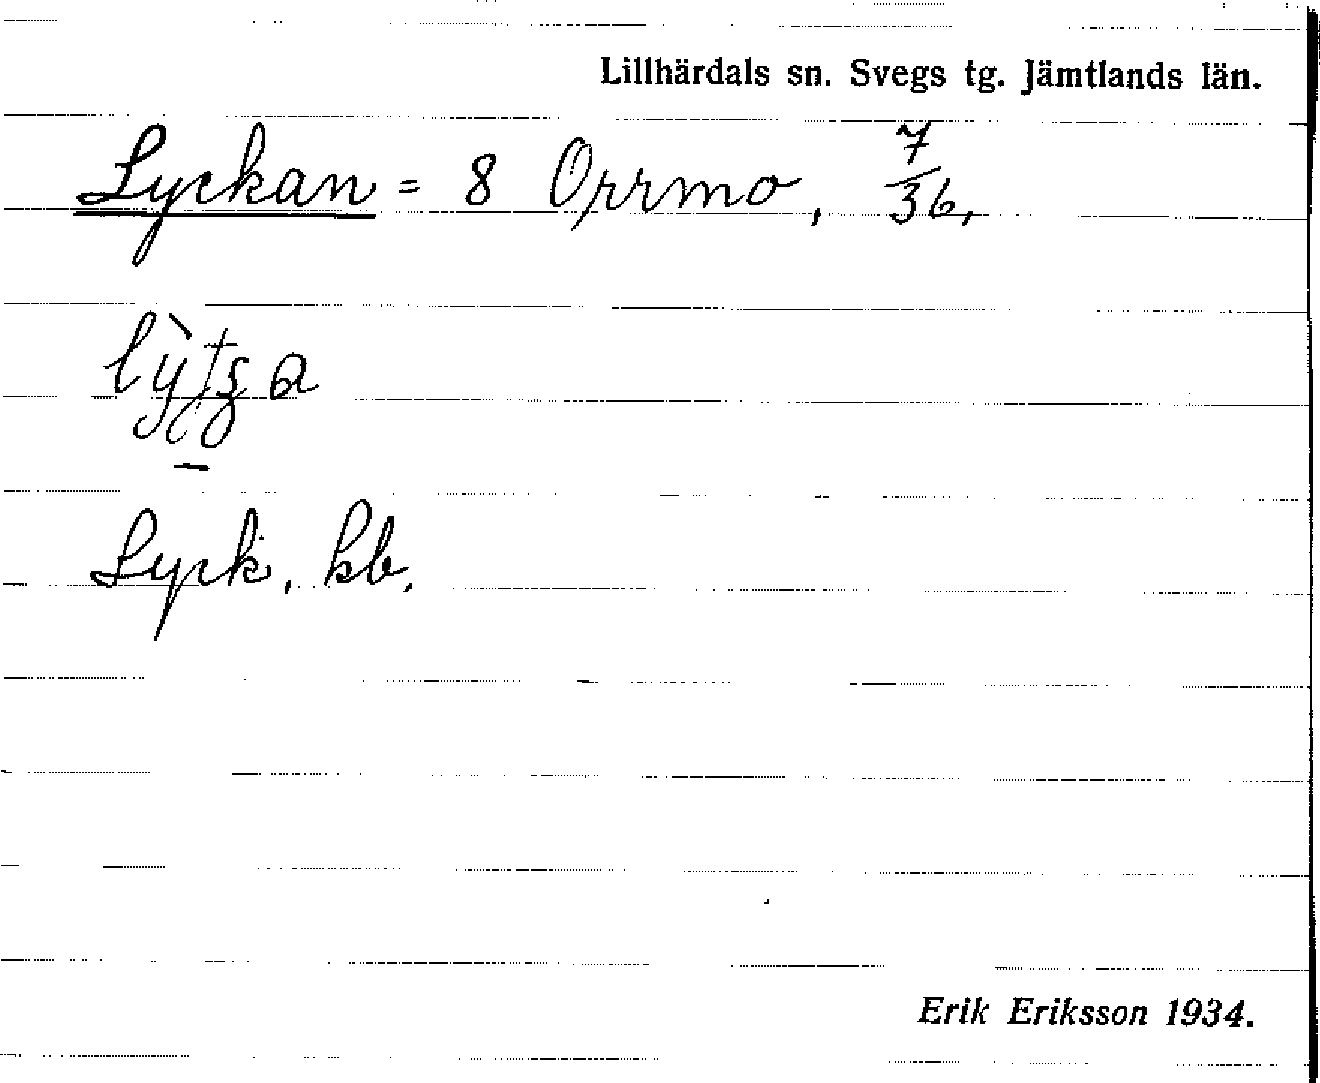 Lillhärdals sn. Svegs tg. Jämtlands län.
Lyckan = 8 Orrmo, 7/36,
Lyck, kb.
Erik Eriksson 1934.